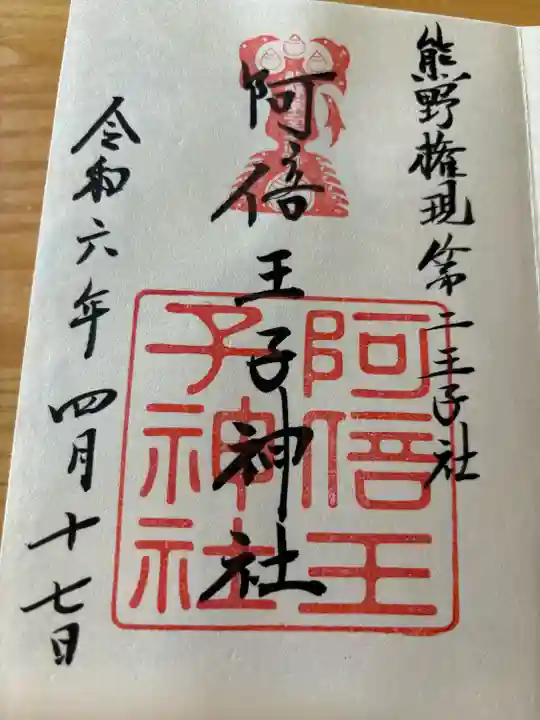 熊野権現第二王子社
阿倍王子神社
阿倍王
子神社
令和六年四月十七日